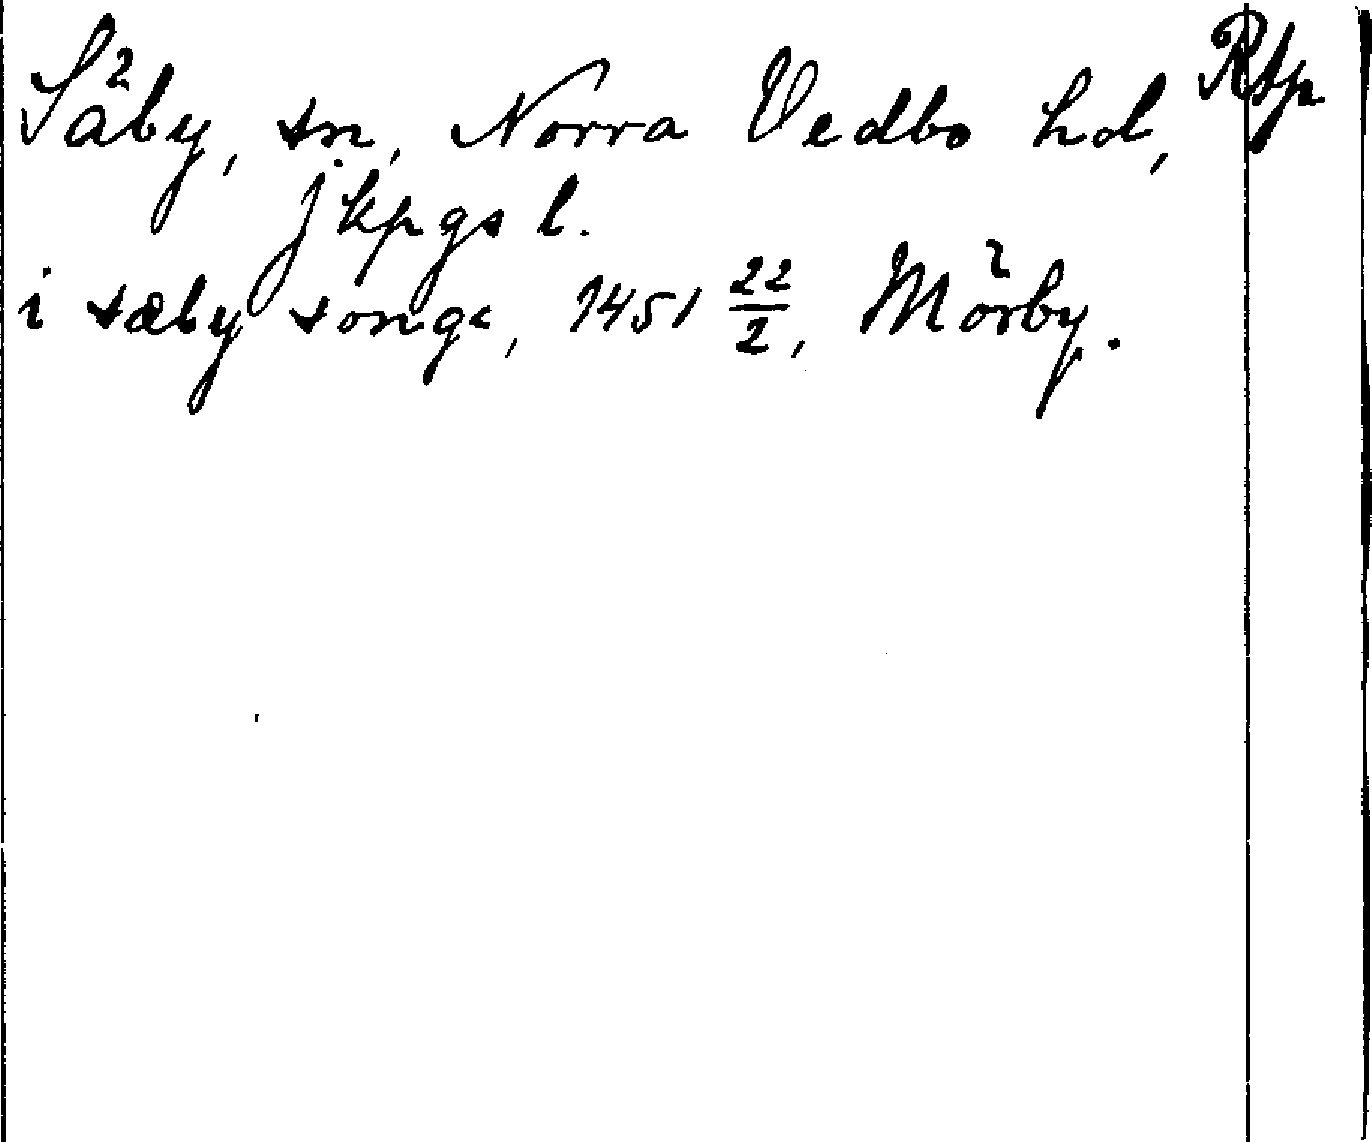 Säby, sn, Norra Vedbo hd, Rsp
Jkpgs l.
i sæby songe, 1451 22/2, Mörby.